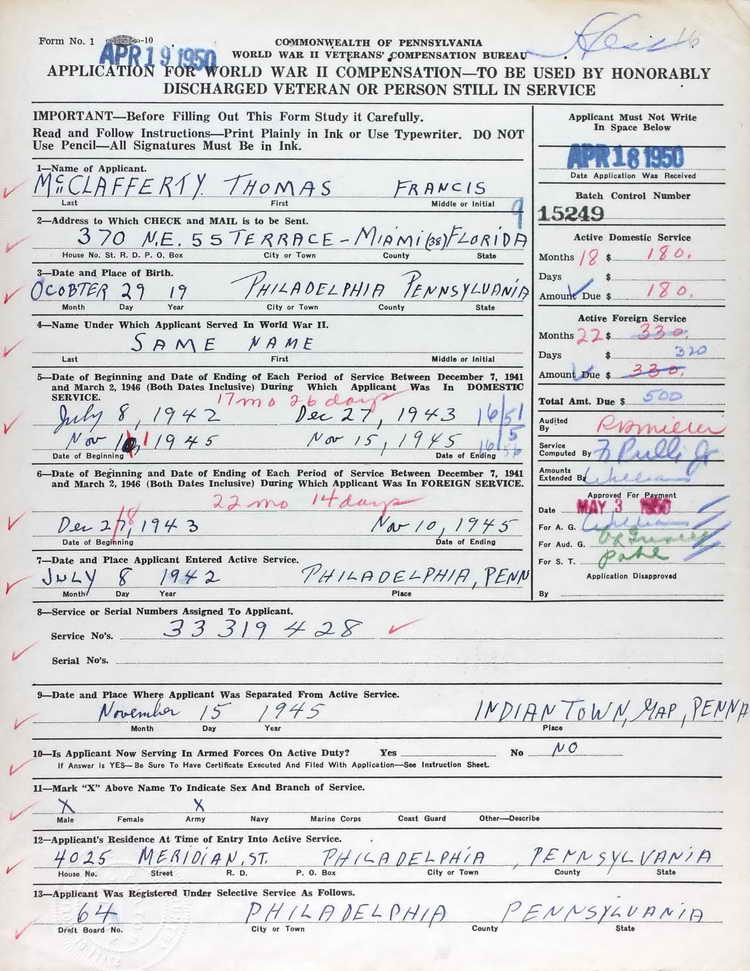 Form No. 1 -10
APR 19 1950
COMMONWEALTH OF PENNSYLVANIA
WORLD WAR II VETERANS' COMPENSATION BUREAU
APPLICATION FOR WORLD WAR II COMPENSATION—TO BE USED BY HONORABLY
DISCHARGED VETERAN OR PERSON STILL IN SERVICE
IMPORTANT—Before Filling Out This Form Study it Carefully.
Read and Follow Instructions—Print Plainly in Ink or Use Typewriter. DO NOT
Use Pencil—All Signatures Must Be in Ink.
1—Name of Applicant.
McCLAFFERTY THOMAS FRANCIS
Last First Middle or Initial
2—Address to Which CHECK and MAIL is to be Sent.
9
370 N.E. 55 TERRACE - MIAMI (38) FLORIDA
House No. St. R. D. P. O. Box City or Town County State
3—Date and Place of Birth.
OCOBTER 29 19 PHILADELPHIA PENNSYLVANIA
Month Day Year City or Town County State
4—Name Under Which Applicant Served In World War II.
SAME NAME
Last First Middle or Initial
5—Date of Beginning and Date of Ending of Each Period of Service Between December 7, 1941
and March 2, 1946 (Both Dates Inclusive) During Which Applicant Was In DOMESTIC
SERVICE.
17 mo 26 days
July 8, 1942 Dec 27, 1943 16/51
Nov 1 1945 Nov 15, 1945 5
16/56
Date of Beginning Date of Ending
6—Date of Beginning and Date of Ending of Each Period of Service Between December 7, 1941
and March 2, 1946 (Both Dates Inclusive) During Which Applicant Was In FOREIGN SERVICE.
22 mo 14 days
18
Dec 27, 1943 Nov 10, 1945
Date of Beginning Date of Ending
7—Date and Place Applicant Entered Active Service.
JULY 8 1942 PHILADELPHIA, PENN
Month Day Year Place
8—Service or Serial Numbers Assigned To Applicant.
Service No's. 33319428
Serial No's.
9—Date and Place Where Applicant Was Separated From Active Service.
November 15 1945 INDIANTOWN, MAP, PENNA
Month Day Year Place
10—Is Applicant Now Serving In Armed Forces On Active Duty? Yes No NO
If Answer is YES—Be Sure To Have Certificate Executed And Filed With Application—See Instruction Sheet.
11—Mark "X" Above Name To Indicate Sex And Branch of Service.
X X
Male Female Army Navy Marine Corps Coast Guard Other—Describe
12—Applicant's Residence At Time of Entry Into Active Service.
4025 MERIDIAN, ST. PHILADELPHIA, PENNSYLVANIA
House No. Street R. D. P. O. Box City or Town County State
13—Applicant Was Registered Under Selective Service As Follows.
64 PHILADELPHIA PENNSYLVANIA
Draft Board No. City or Town County State
Applicant Must Not Write
In Space Below
APR 18 1950
Date Application Was Received
Batch Control Number
15249
Active Domestic Service
Months 18 $ 180.
Days $
Amount Due $ 180.
Active Foreign Service
Months 22 $ 330.
Days $ 320
Amount Due $ 330.
Total Amt. Due $ 500
Audited
By
Service
Computed By
Amounts
Extended By
Approved For Payment
Date MAY 3 1950
For A. G.
For Aud. G.
For S. T.
Application Disapproved
By